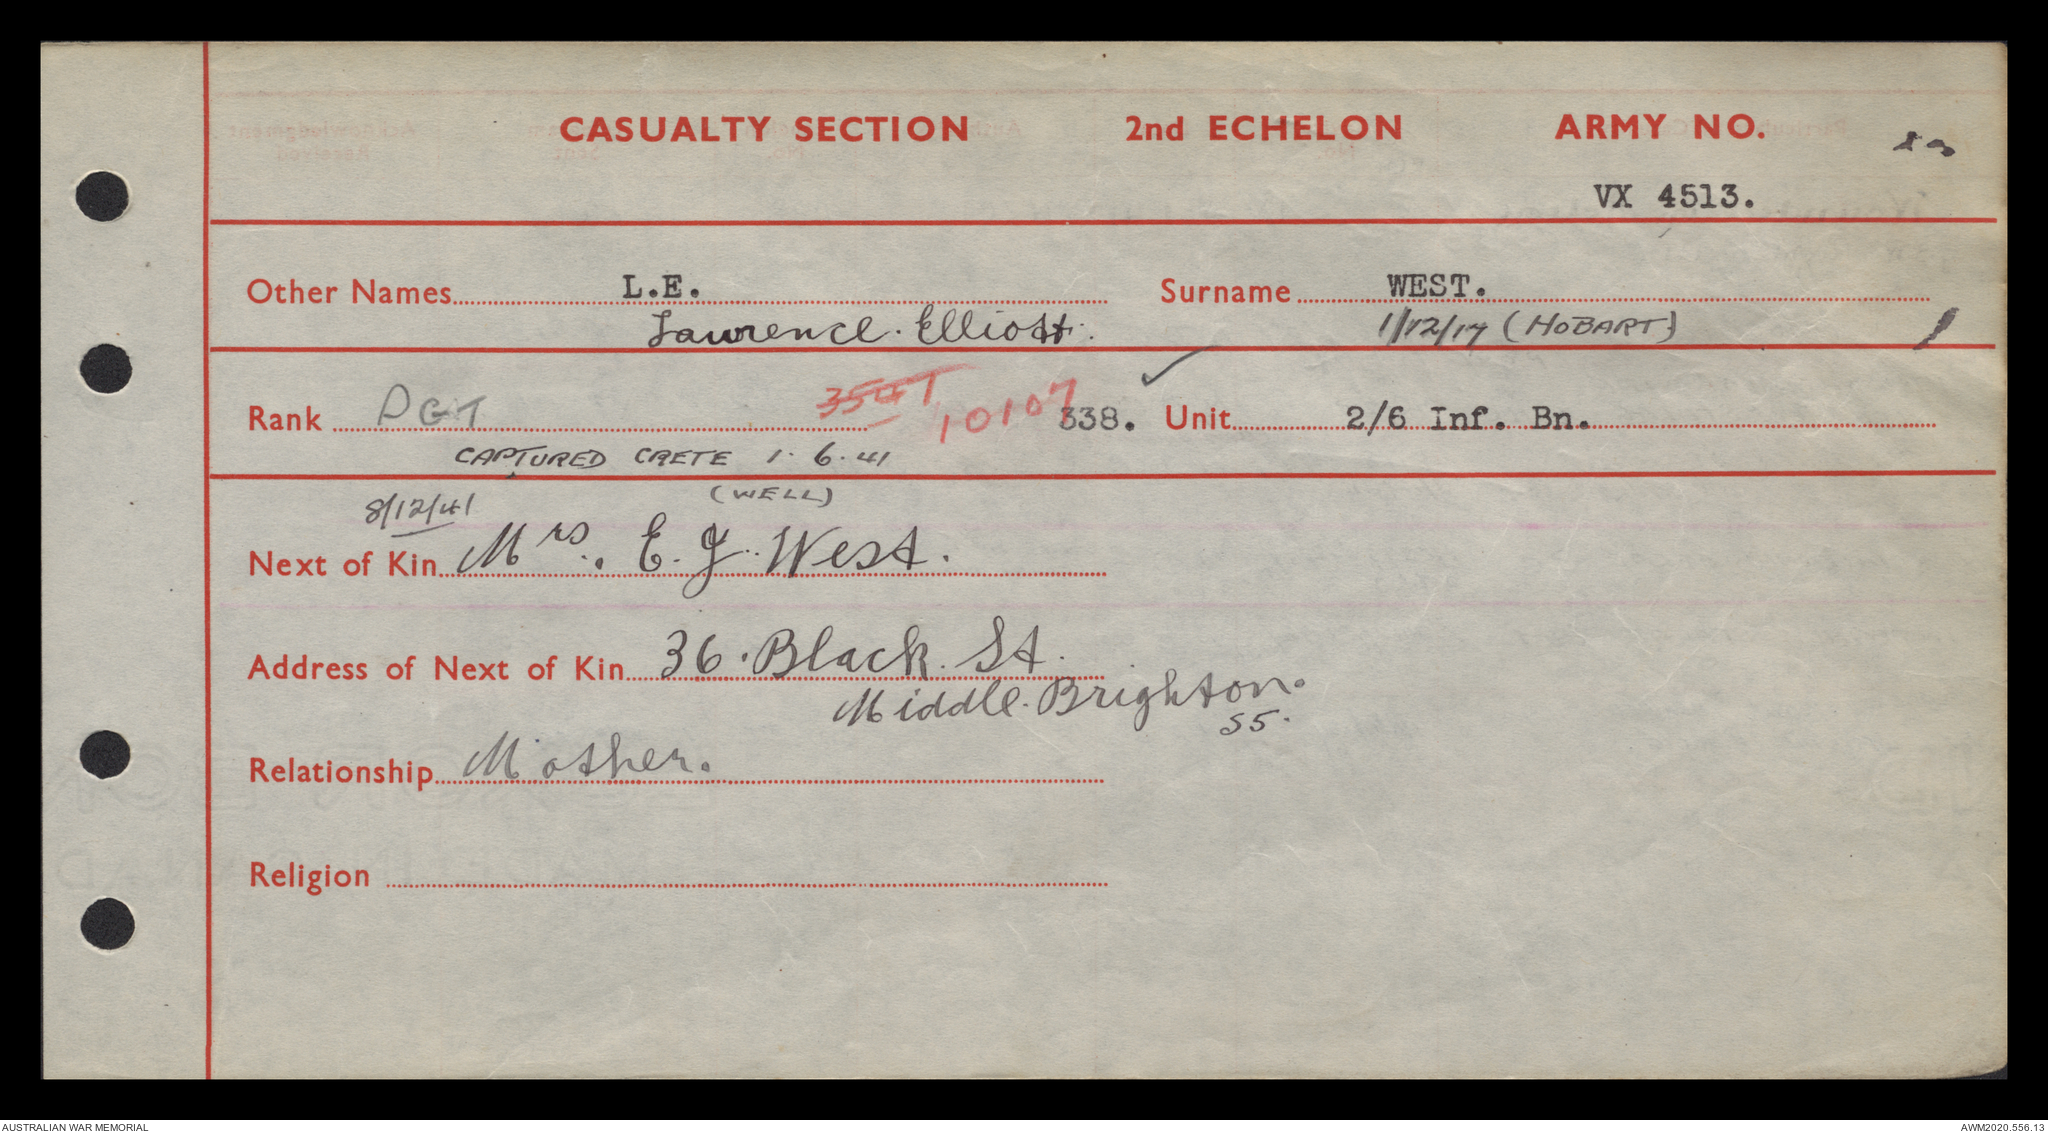 CASUALTY SECTION 2nd ECHELON ARMY NO.
VX 4513.
Other Names L.E. Surname WEST.
Lawrence. Elliott. 1/12/17 (HOBART)
Rank PGT 3547 10107 338. Unit 2/6 Inf. Bn.
CAPTURED CRETE 1.6.41
8/12/41 (WELL)
Next of Kin Mrs. E. J. West.
Address of Next of Kin 36. Black. St.
Middle. Brighton.
S5.
Relationship Mother.
Religion
AUSTRALIAN WAR MEMORIAL AWM2020.556.13